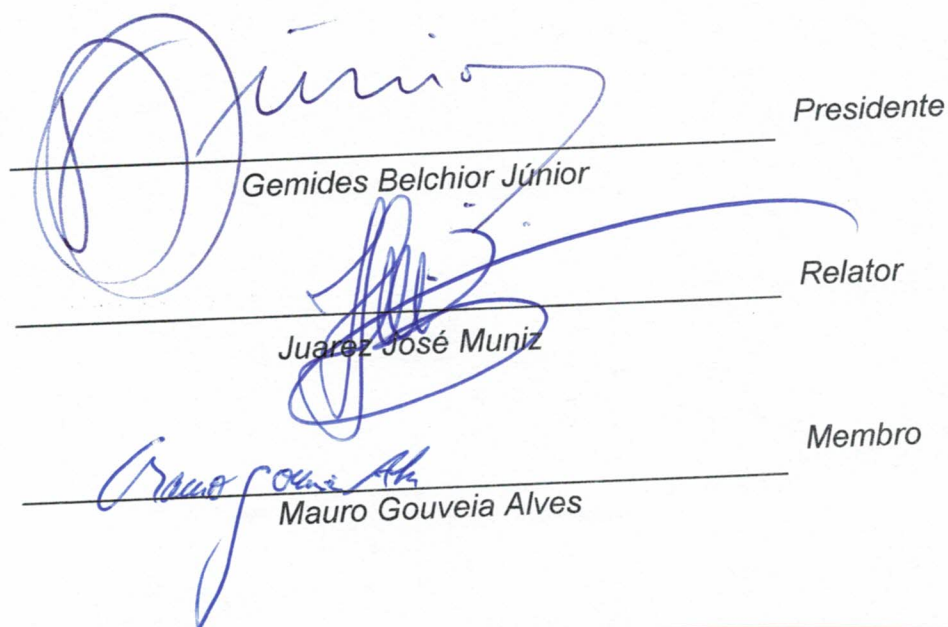 Júnior
Presidente
Gemides Belchior Júnior
Relator
Juarez José Muniz
Membro
Mauro Gouveia Alves
Mauro Gouveia Alves